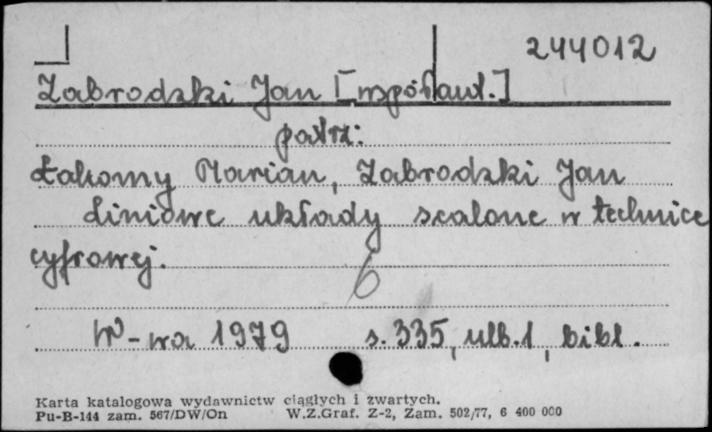 244012
Zabrodzki Jan [współaut.]
patrz:
Łakomy Marian, Zabrodzki Jan
Liniowe układy scalone w technice
cyfrowej.
6
W-wa 1979 s. 335, ulb. 1, bibl.
Karta katalogowa wydawnictw ciągłych i zwartych.
Pu-B-144 zam. 567/DW/On W.Z.Graf. Z-2, Zam. 502/77, 6 400 000